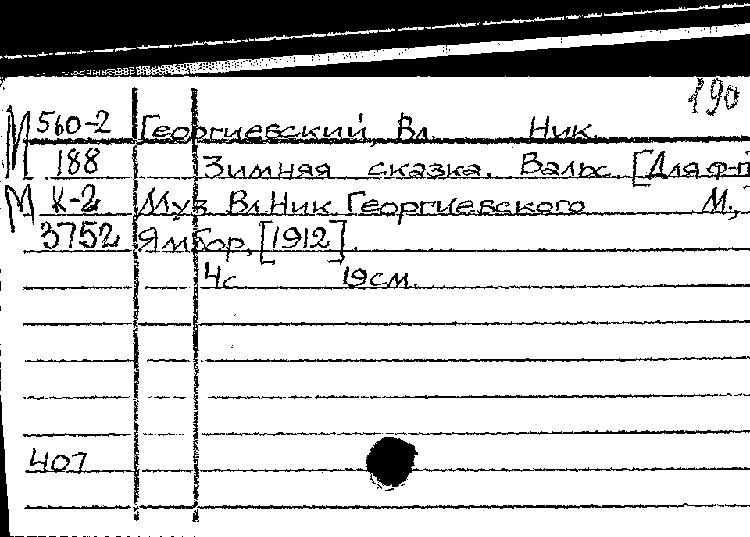 190
М 560-2 Георгиевский, Вл. Ник.
188 Зимняя сказка. Вальс. [Для ф-п
М К-2 Муз Вл.Ник. Георгиевского М.,
3752 Ямбор, [1912].
4с 19см.
407